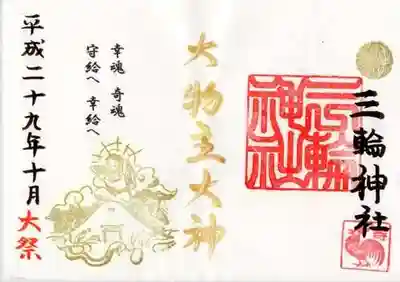 三輪神社
三輪神社
大物主大神
幸魂 奇魂
守給へ 幸給へ
平成二十九年十月 大祭